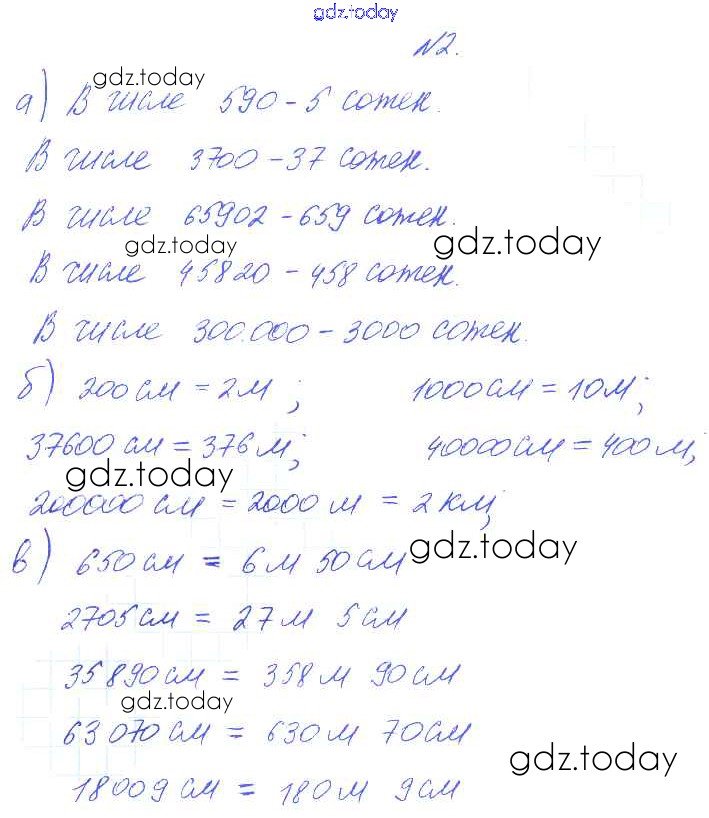 gdz.today
№2.
gdz.today
а) В числе 590 - 5 сотен.
В числе 3700 - 37 сотен.
В числе 65902 - 659 сотен.
gdz.today gdz.today
В числе 45820 - 458 сотен.
В числе 300.000 - 3000 сотен.
б) 200 см = 2 м ; 1000 см = 10 м;
37600 см = 376 м; 40000 см = 400 м;
gdz.today
200000 см = 2000 м = 2 км;
в) 650 см = 6 м 50 см gdz.today
2705 см = 27 м 5 см
35890 см = 358 м 90 см
gdz.today
63070 см = 630 м 70 см
gdz.today
18009 см = 180 м 9 см